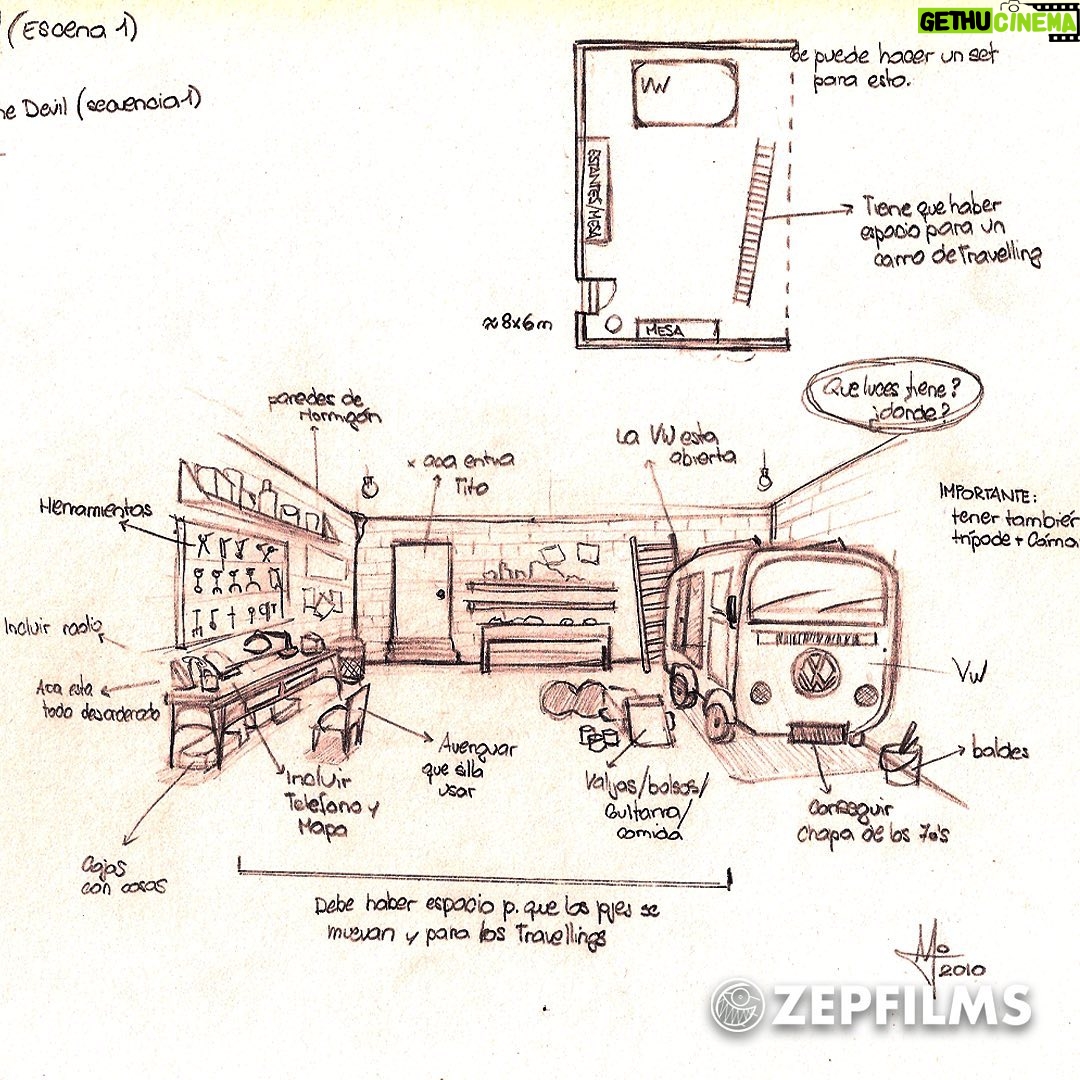 (Escena 1)
GETHUCINEMA
se puede hacer un set
para esto.
he Devil (secuencia 1)
VW
ESTANTES/MESA
Tiene que haber
espacio para un
carro de Travelling
≈8x6m
MESA
Que luces tiene?
¿donde?
paredes de
Hormigón
x aca entra
Tito
La VW esta
abierta
Herramientas
IMPORTANTE:
tener también
trípode + Cáma
Incluir radio
Aca esta
todo desordenado
VW
Averiguar
que silla
usar
baldes
Incluir
Telefono y
Mapa
Valijas/bolsos/
Guitarra/
comida
Conseguir
chapa de los 70's
Cajas
con cosas
Debe haber espacio p. que los pjes se
muevan y para los Travellings
2010
ZEPFILMS